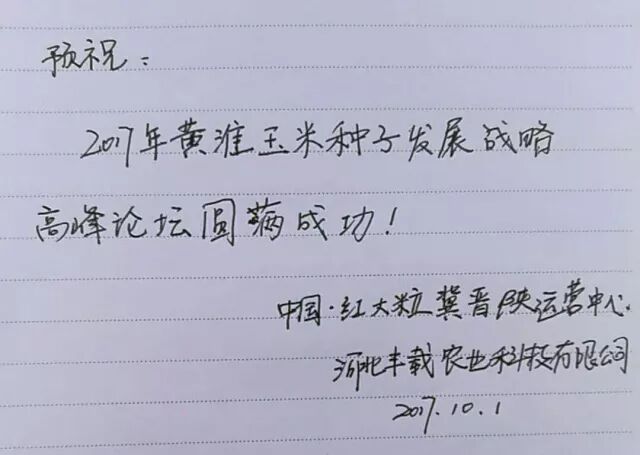 预祝：
2017年黄淮玉米种子发展战略
高峰论坛圆满成功！
中国·红大粒冀晋陕运营中心
河北丰载农业科技有限公司
2017.10.1